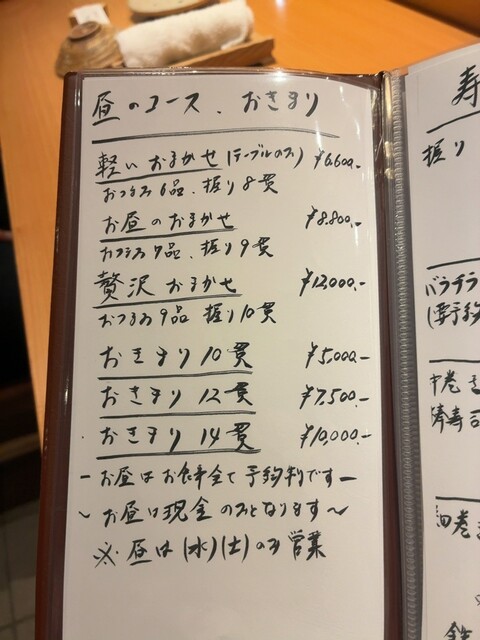 昼のコース、おきまり
軽いおまかせ(テーブルのみ) ¥6.600.-
おつまみ6品、握り8貫
お昼のおまかせ ¥8.800.-
おつまみ7品、握り9貫
贅沢おまかせ ¥12,000.-
おつまみ9品 握り10貫
おきまり10貫 ¥5,000.-
おきまり12貫 ¥7,500.-
おきまり14貫 ¥10,000.-
-お昼はお食事全て予約制です-
~お昼は現金のみとなります~
※昼は(水)(土)のみ営業
寿
握り
バラチラ
(要予約
中巻き
稲荷寿司
細巻き